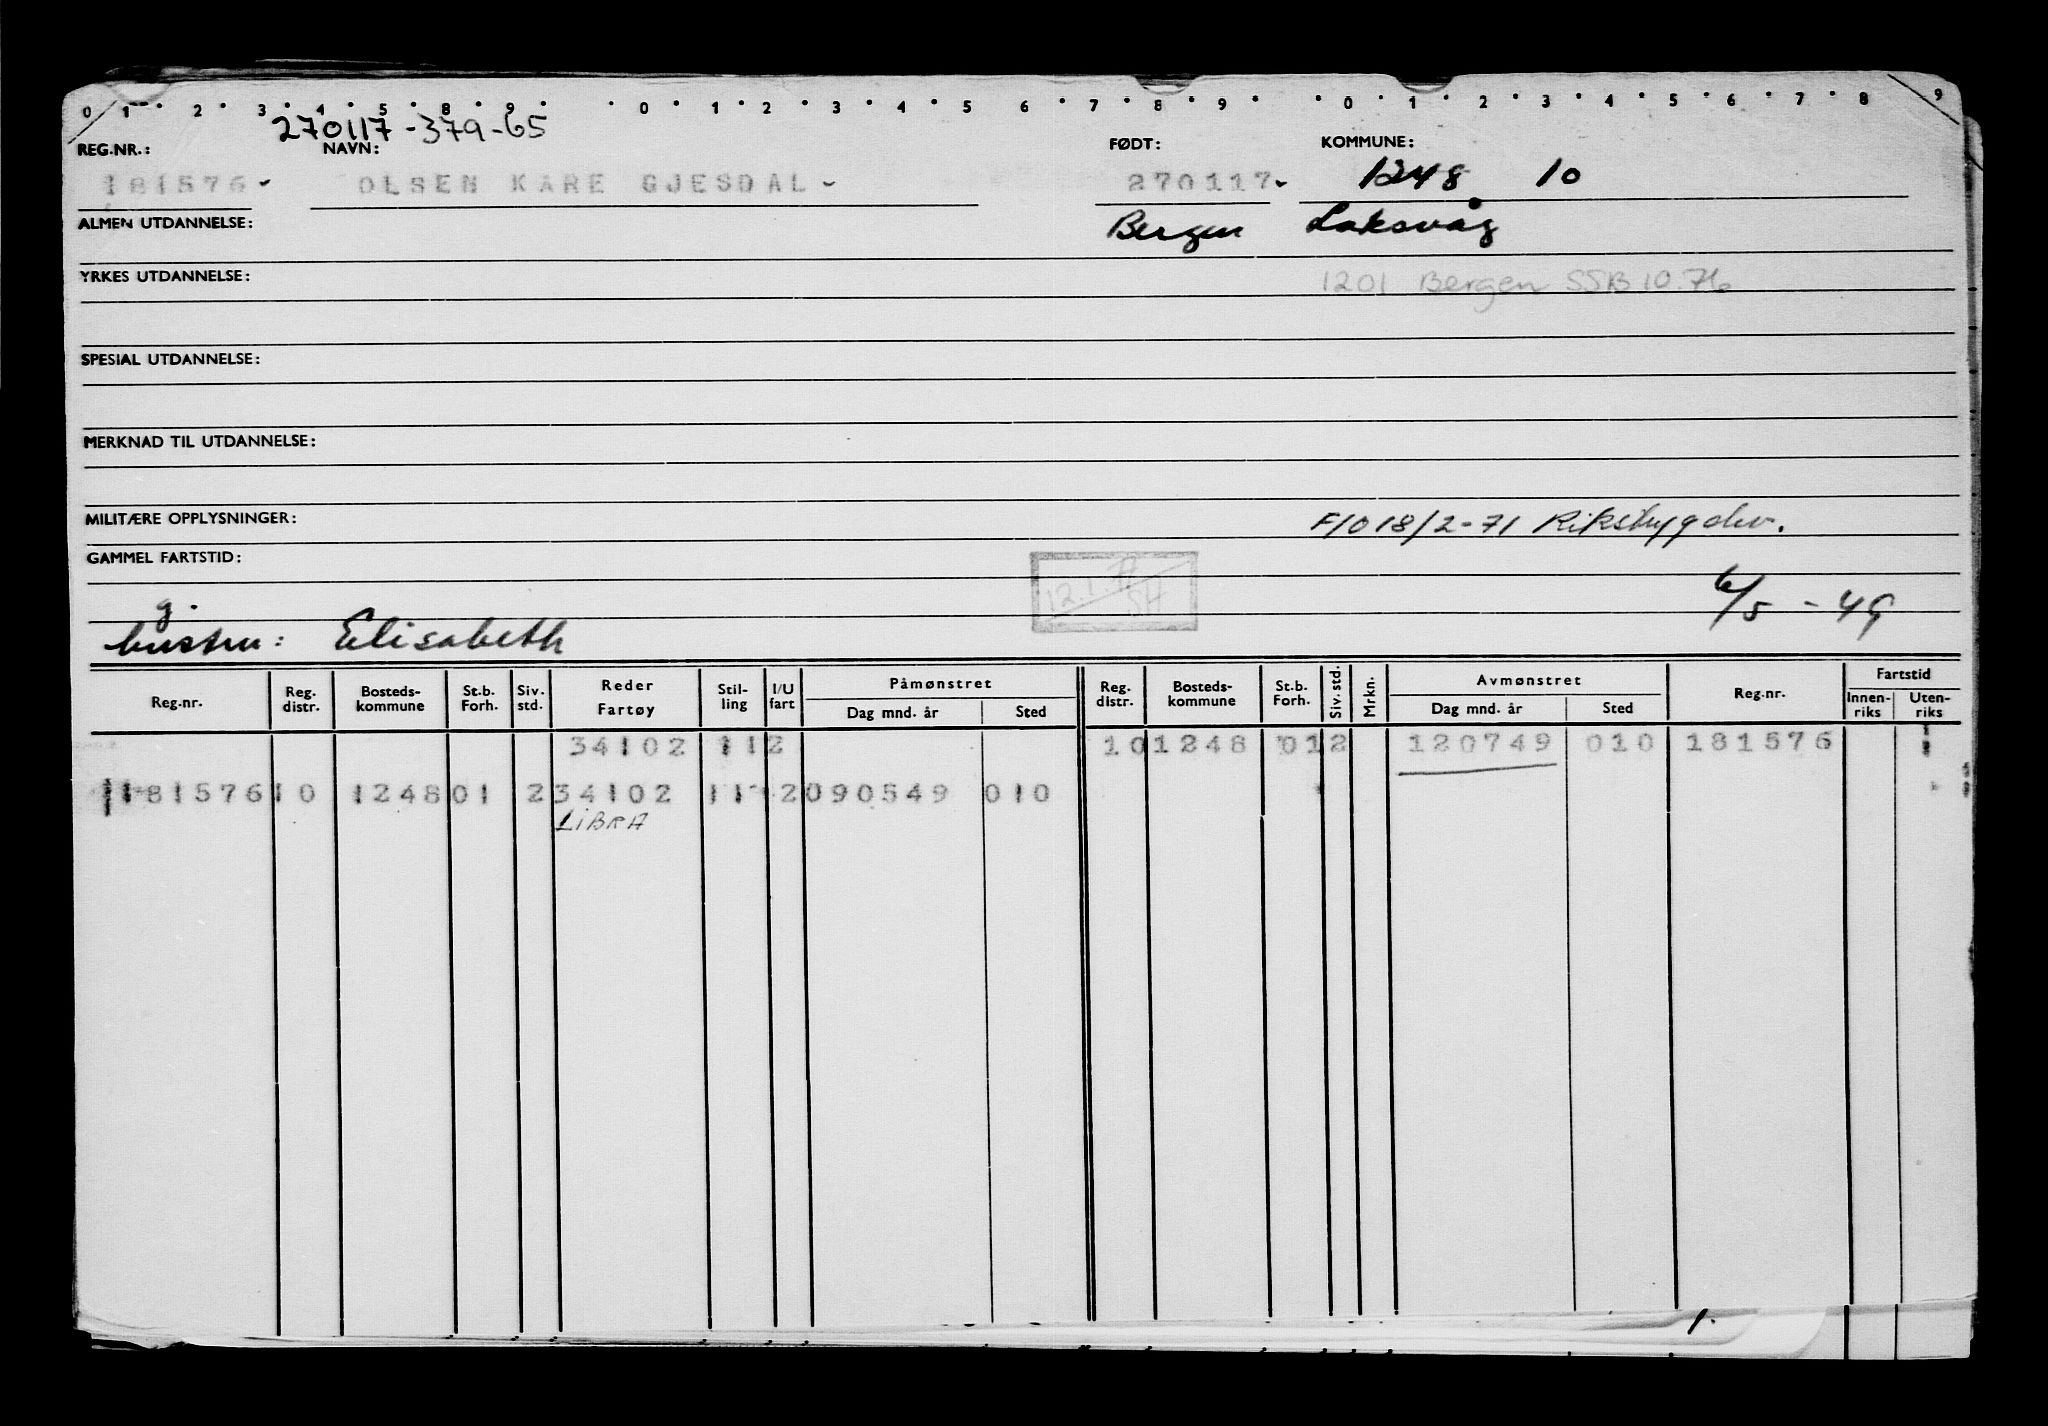 0 1 2 3 4 5 8 9 0 1 2 3 4 5 6 7 8 9 0 1 2 3 4 5 6 7 8 9
270117-379-65
REG.NR.: NAVN: FØDT: KOMMUNE:
181576- OLSEN KARE GJESDAL- 270117- 1248 10
ALMEN UTDANNELSE: Bergen Laksvåg
YRKES UTDANNELSE: 1201 Bergen SSB 10.76
SPESIAL UTDANNELSE:
MERKNAD TIL UTDANNELSE:
MILITÆRE OPPLYSNINGER: F/O 18/2-71 Riksbygdev.
GAMMEL FARTSTID:
6/5 - 49
g.
hustru: Elisabeth
Reg.nr. Reg. distr. Bosteds- kommune St.b. Forh. Siv. std. Reder Fartøy Stil- ling I/U fart Påmønstret Dag mnd. år Sted Reg. distr. Bosteds- kommune St.b. Forh. Siv. std. Mrkn. Avmønstret Dag mnd. år Sted Reg.nr. Fartstid Innen- riks Uten- riks
34102 11 2 10 1248 01 2 120749 010 181576
181576 10 1248 01 2 34102 11 2 090549 010
LIBRA
1.